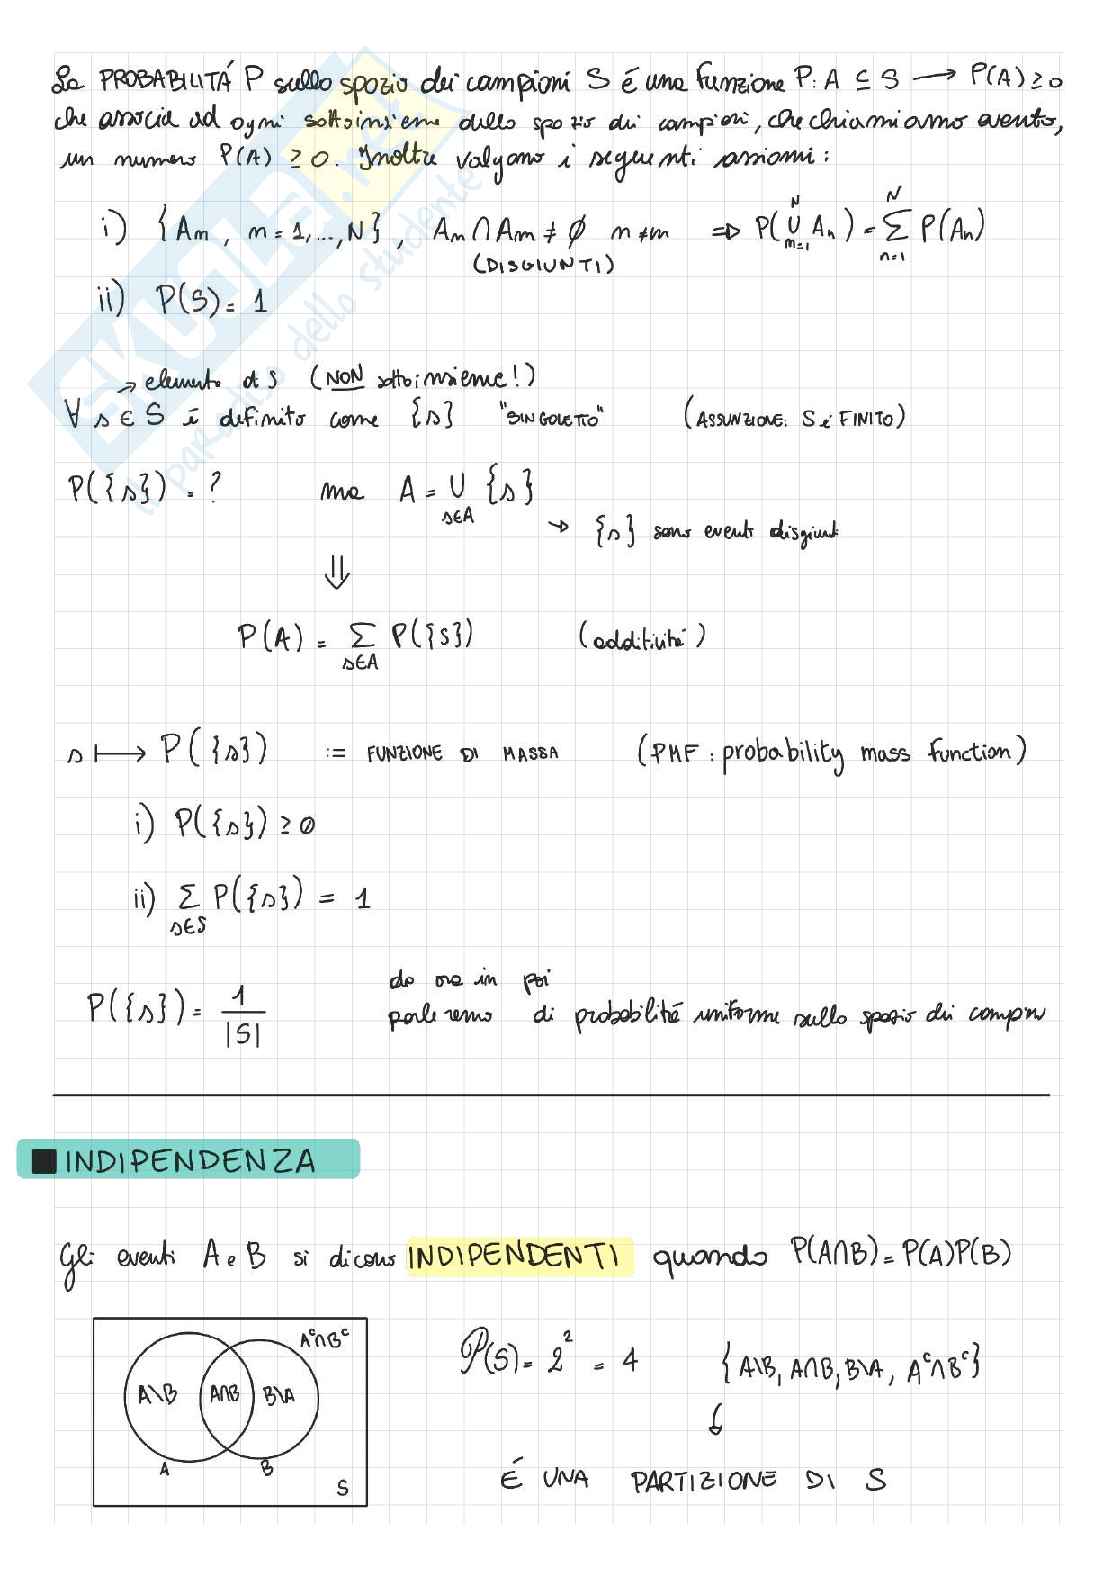 La PROBABILITÁ P sullo spazio dei campioni S é una funzione P: A ⊆ S → P(A) ≥ 0
che associa ad ogni sottoinsieme dello spazio dei campioni, che chiamiamo evento,
un numero P(A) ≥ 0. Inoltre valgono i seguenti assiomi:
i) {Am, m = 1,...,N}, Am ∩ Am ≠ ∅ n ≠ m ⇒ P(∪ An) = Σ P(An)
N m=1 N n=1
(DISGIUNTI)
ii) P(S) = 1
→ elemento di S (NON sottoinsieme!)
∀ s ∈ S è definito come {s} "SINGOLETTO" (ASSUNZIONE: S é FINITO)
P({s}) = ? ma A = ∪ {s}
s∈A
→ {s} sono eventi disgiunti
⇓
P(A) = Σ P({s}) (additività)
s∈A
s ⟼ P({s}) := FUNZIONE DI MASSA (PMF: probability mass function)
i) P({s}) ≥ 0
ii) Σ P({s}) = 1
s∈S
da ora in poi
P({s}) = 1/|S| parleremo di probabilitá uniforme sullo spazio dei campioni
■ INDIPENDENZA
Gli eventi A e B si dicono INDIPENDENTI quando P(A∩B) = P(A)P(B)
A^c∩B^c
A\B A∩B B\A
A B
S
𝒫(S) = 2² = 4 {A\B, A∩B, B\A, A^c∩B^c}
↓
É UNA PARTIZIONE DI S
SKUOLA.net
il paradiso dello studente